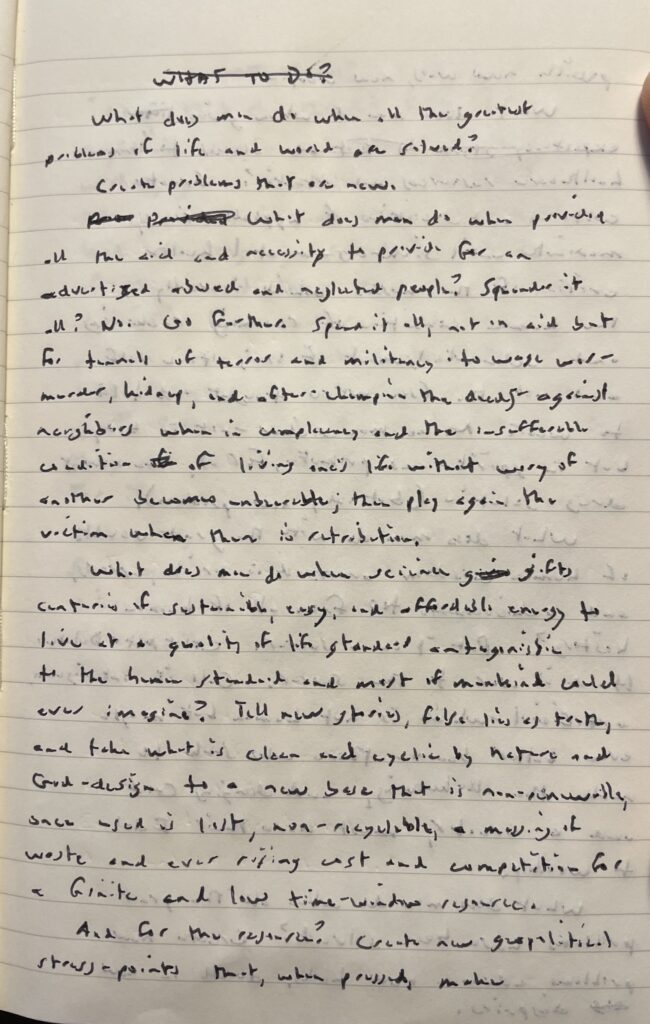 WHAT TO DO?
What does man do when all the greatest
problems of life and world are solved?
Create problems that are new.
What does man do when provided
all the aid and necessity to provide for an
advertized abused and neglected people? Squander it
all? No. Go further. Spend it all, not in aid but
for tunnels of terror and militancy to wage war-
murder, kidnap, and after champion the deeds against
neighbors when in complacency and the insufferable
condition of living one's life without worry of
another becomes unbearable; then play again the
victim when there is retribution.
What does man do when science gifts
centuries of sustainable, easy, and affordable energy to
live at a quality of life standard antagonistic
to the human standard and most of mankind could
ever imagine? Tell new stories, false lies as truth,
and take what is clean and cyclic by nature and
God-design to a new base that is non-renewable,
once used is lost, non-recyclable, a massing of
waste and ever rising cost and competition for
a finite and low time-window resource.
And for the resource? Create new geopolitical
stress-points that, when pressed, make